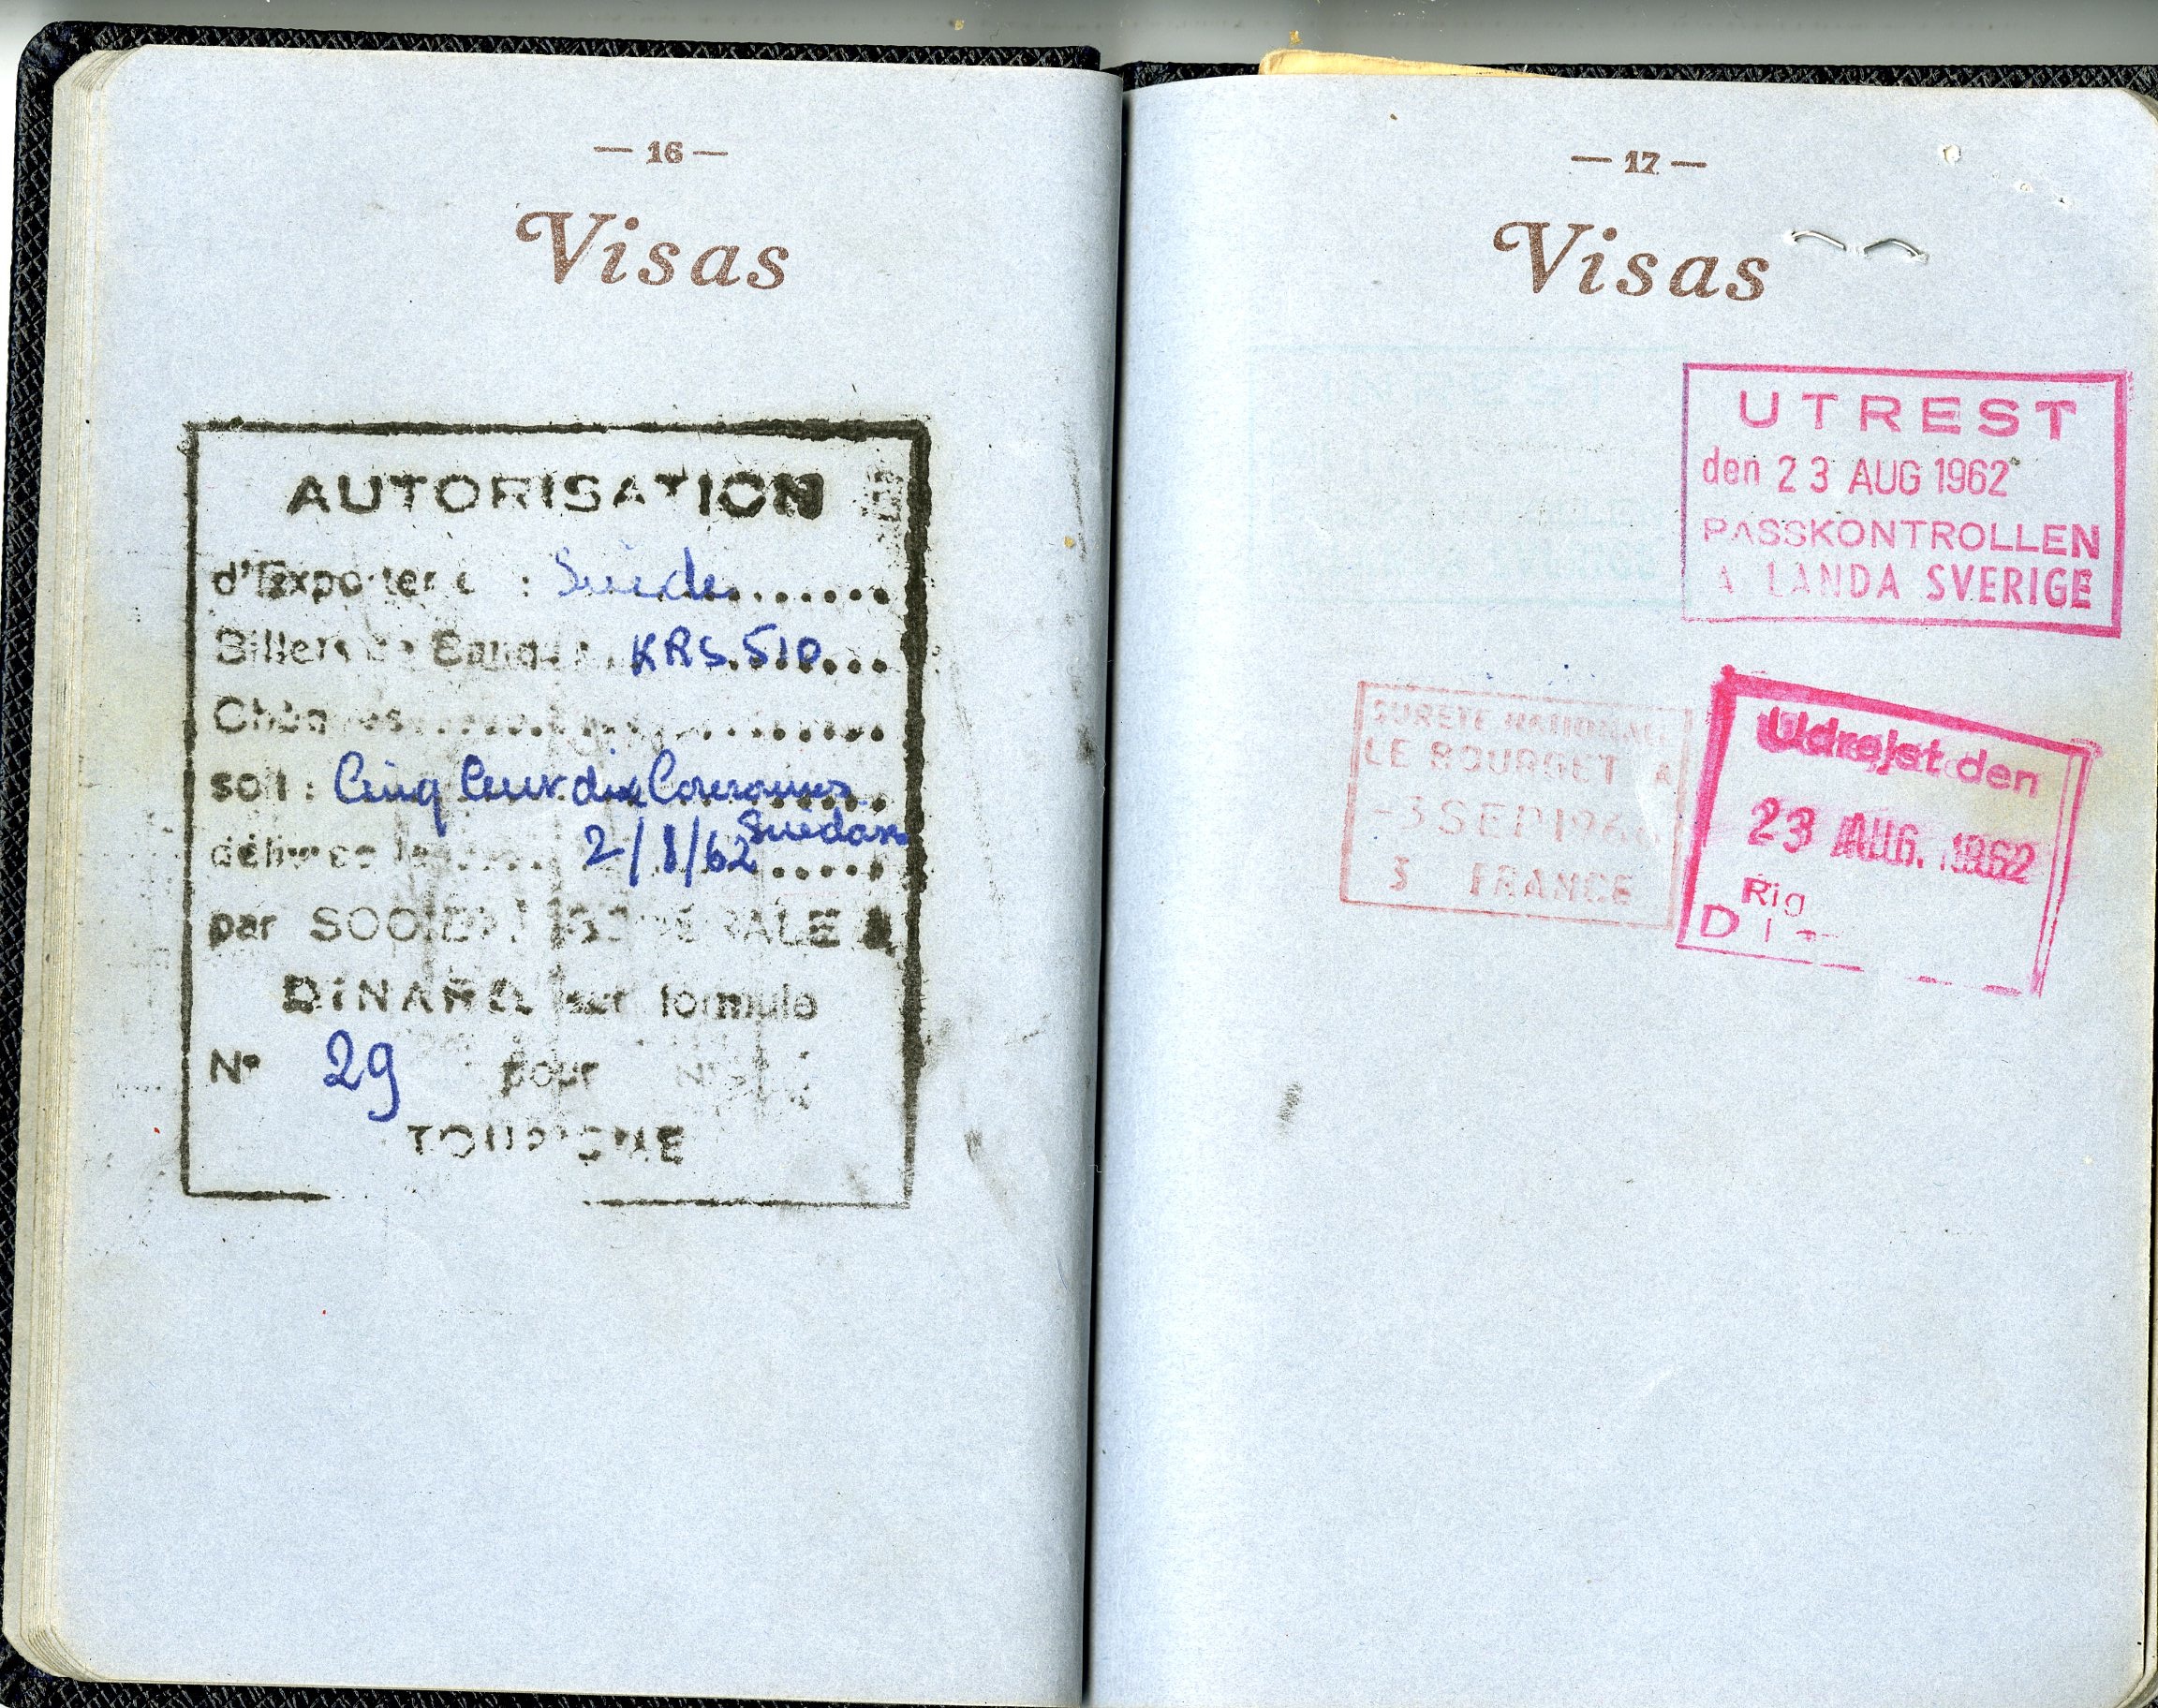 — 16 —
Visas
AUTORISATION
d'Exporter : Suède
Billets de Banque KRS. 510
Chèques
soit : Cinq Cent dix Couronnes
Suédoises
délivrée le 2/8/62
par SOCIETE GENERALE A
DINARD sur formule
N° 29 pour
TOURISME
— 17 —
Visas
UTREST
den 23 AUG 1962
PASSKONTROLLEN
A LANDA SVERIGE
SURETE NATIONALE
LE BOURGET A
-3 SEP 196
3 FRANCE
Udrejst den
23 AUG. 1962
Rig
D